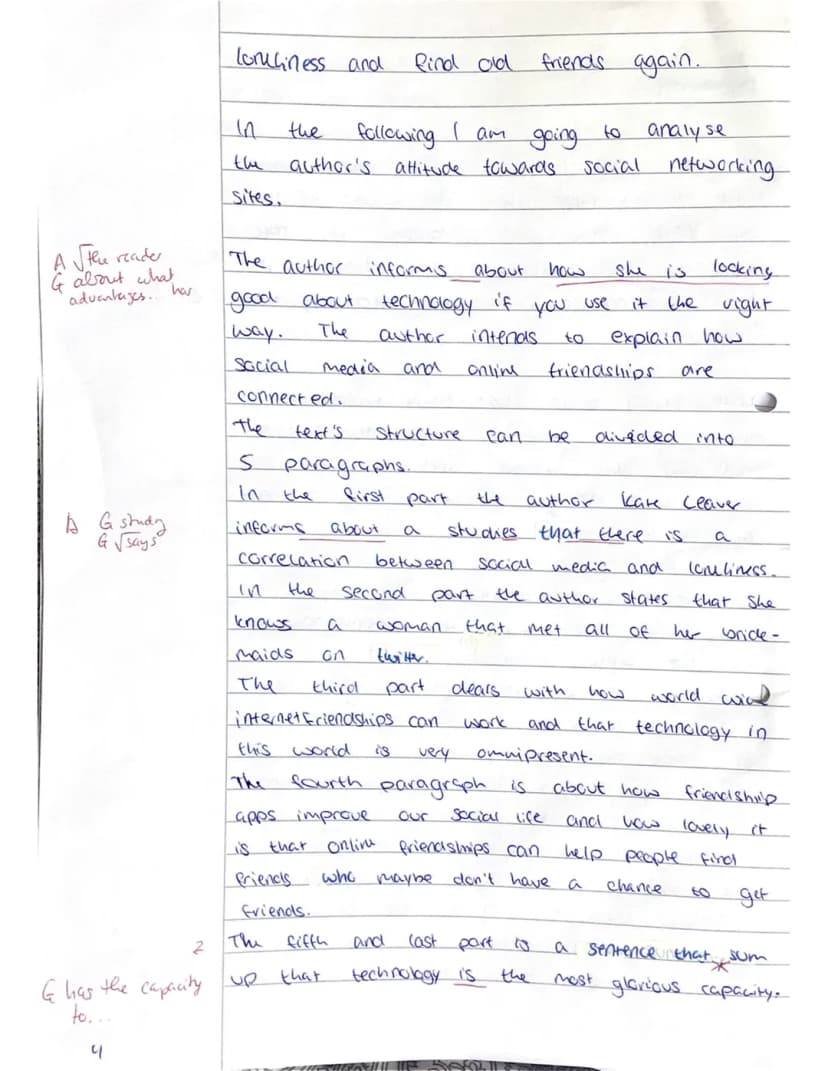 loneliness and find old friends again.
In the following I am going to analyse
the author's attitude towards social networking
sites.
A √the reader
G about what
advantages... has
The author informs about how she is looking
good about technology if you use it the right
way. The author intends to explain how
social media and online friendships are
connected.
The text's structure can be divided into
5 paragraphs.
In the first part the author Kate Leaver
A G study
G √says
informs about a studies that there is a
correlation between social media and loneliness.
In the second part the author states that she
knows a woman that met all of her bride-
maids on twitter.
The third part dears with how world wide
internetfriendships can work and that technology in
this world is very omnipresent.
The fourth paragraph is about how friendship
apps improve our social life and how lovely it
is that online friendships can help people find
friends who maybe don't have a chance to get
friends.
2
The fifth and last part is a sentence that sum
G has the capacity
to...
up that technology is the most glorious capacity.
4